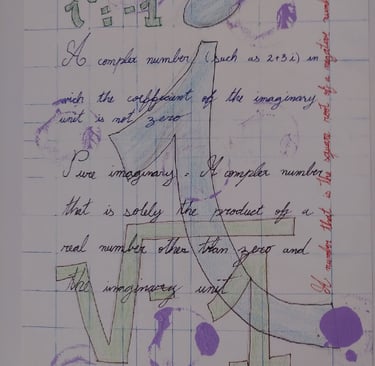 i²=-1
A complex number (such as 2+3i) in
wich the coefficient of the imaginary
unit is not zero
Pure imaginary. A complex number
that is solely the product of a
real number other than zero and
the imaginary unit
√-1
A number that is the square root of a negative number